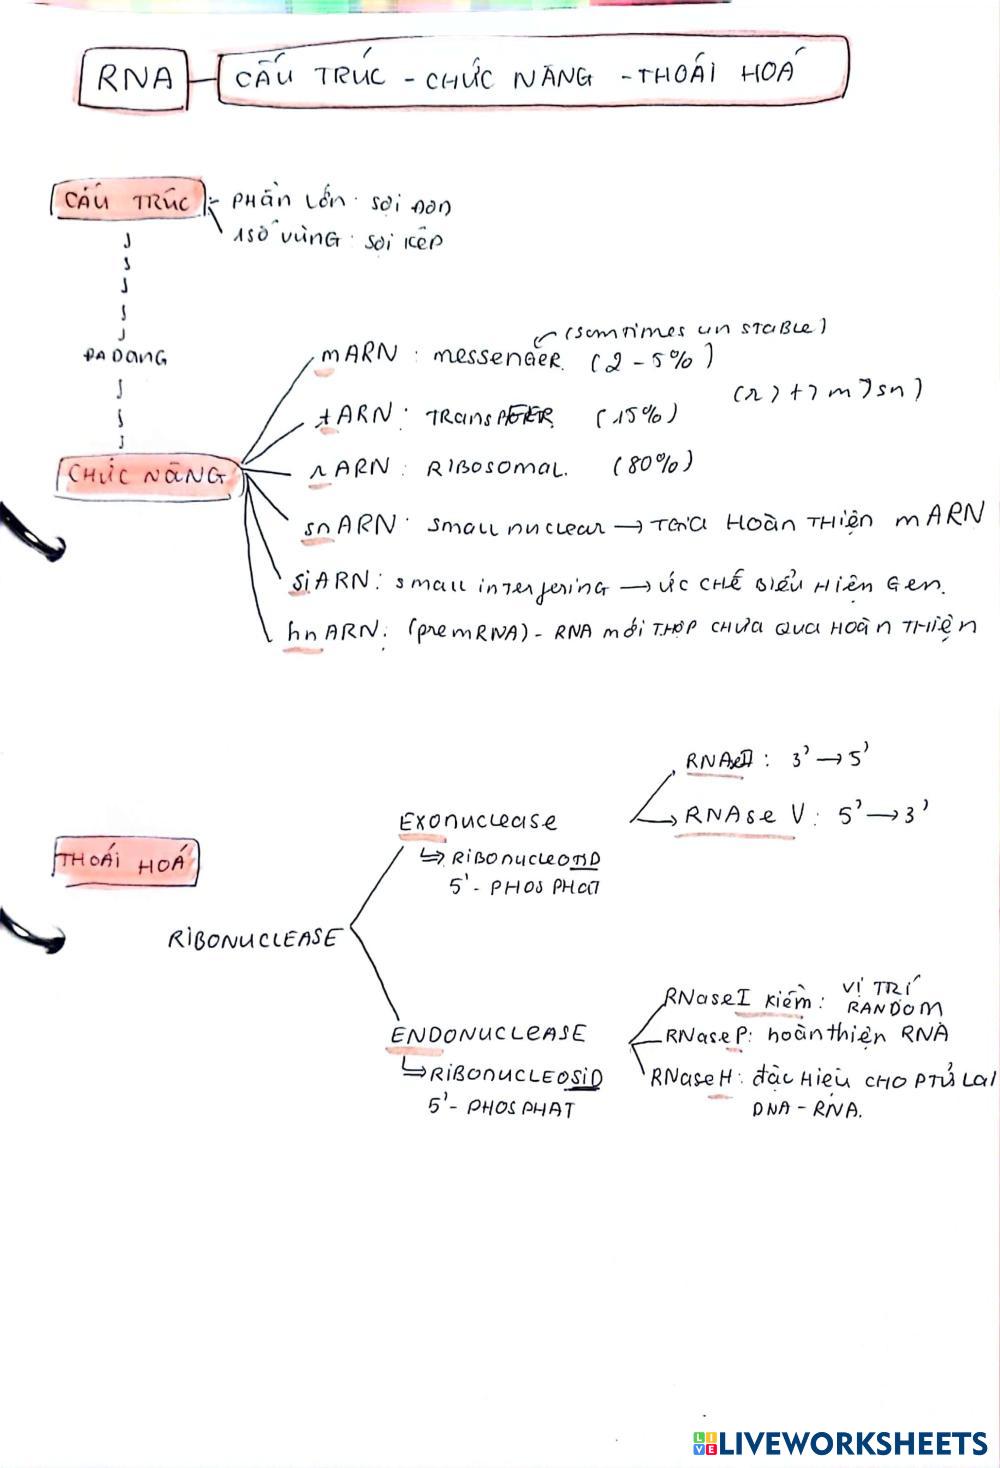 RNA CẤU TRÚC - CHỨC NĂNG - THOÁI HOÁ
CẤU TRÚC PHẦN LỚN: SỢI ĐƠN
1 SỐ VÙNG: SỢI KÉP
ĐA DẠNG
(somtimes un STABLE)
mARN: messenGER. (2 - 5%)
(r > t > m > sn)
tARN: TRansFER (15%)
CHỨC NĂNG
rARN: RIBOSOMAL. (80%)
snARN: small nuclear → HOÀN THIỆN mARN
siARN: small interfering → ỨC CHẾ BIỂU HIỆN Gen.
hnARN: (premRNA) - RNA mới T.HỢP CHƯA QUA HOÀN THIỆN
RNAseII: 3' → 5'
EXONUCLEASE
RNAse V: 5' → 3'
THOÁI HOÁ
↳ RIBONUCLEOTID
5' - PHOSPHAT
RIBONUCLEASE
RNaseI kiềm: VỊ TRÍ RANDOM
ENDONUCLEASE
RNaseP: hoàn thiện RNA
↳ RIBONUCLEOSID
5' - PHOSPHAT
RNaseH: đặc HIỆU CHO PTỬ LAI
DNA - RNA.
LIVEWORKSHEETS